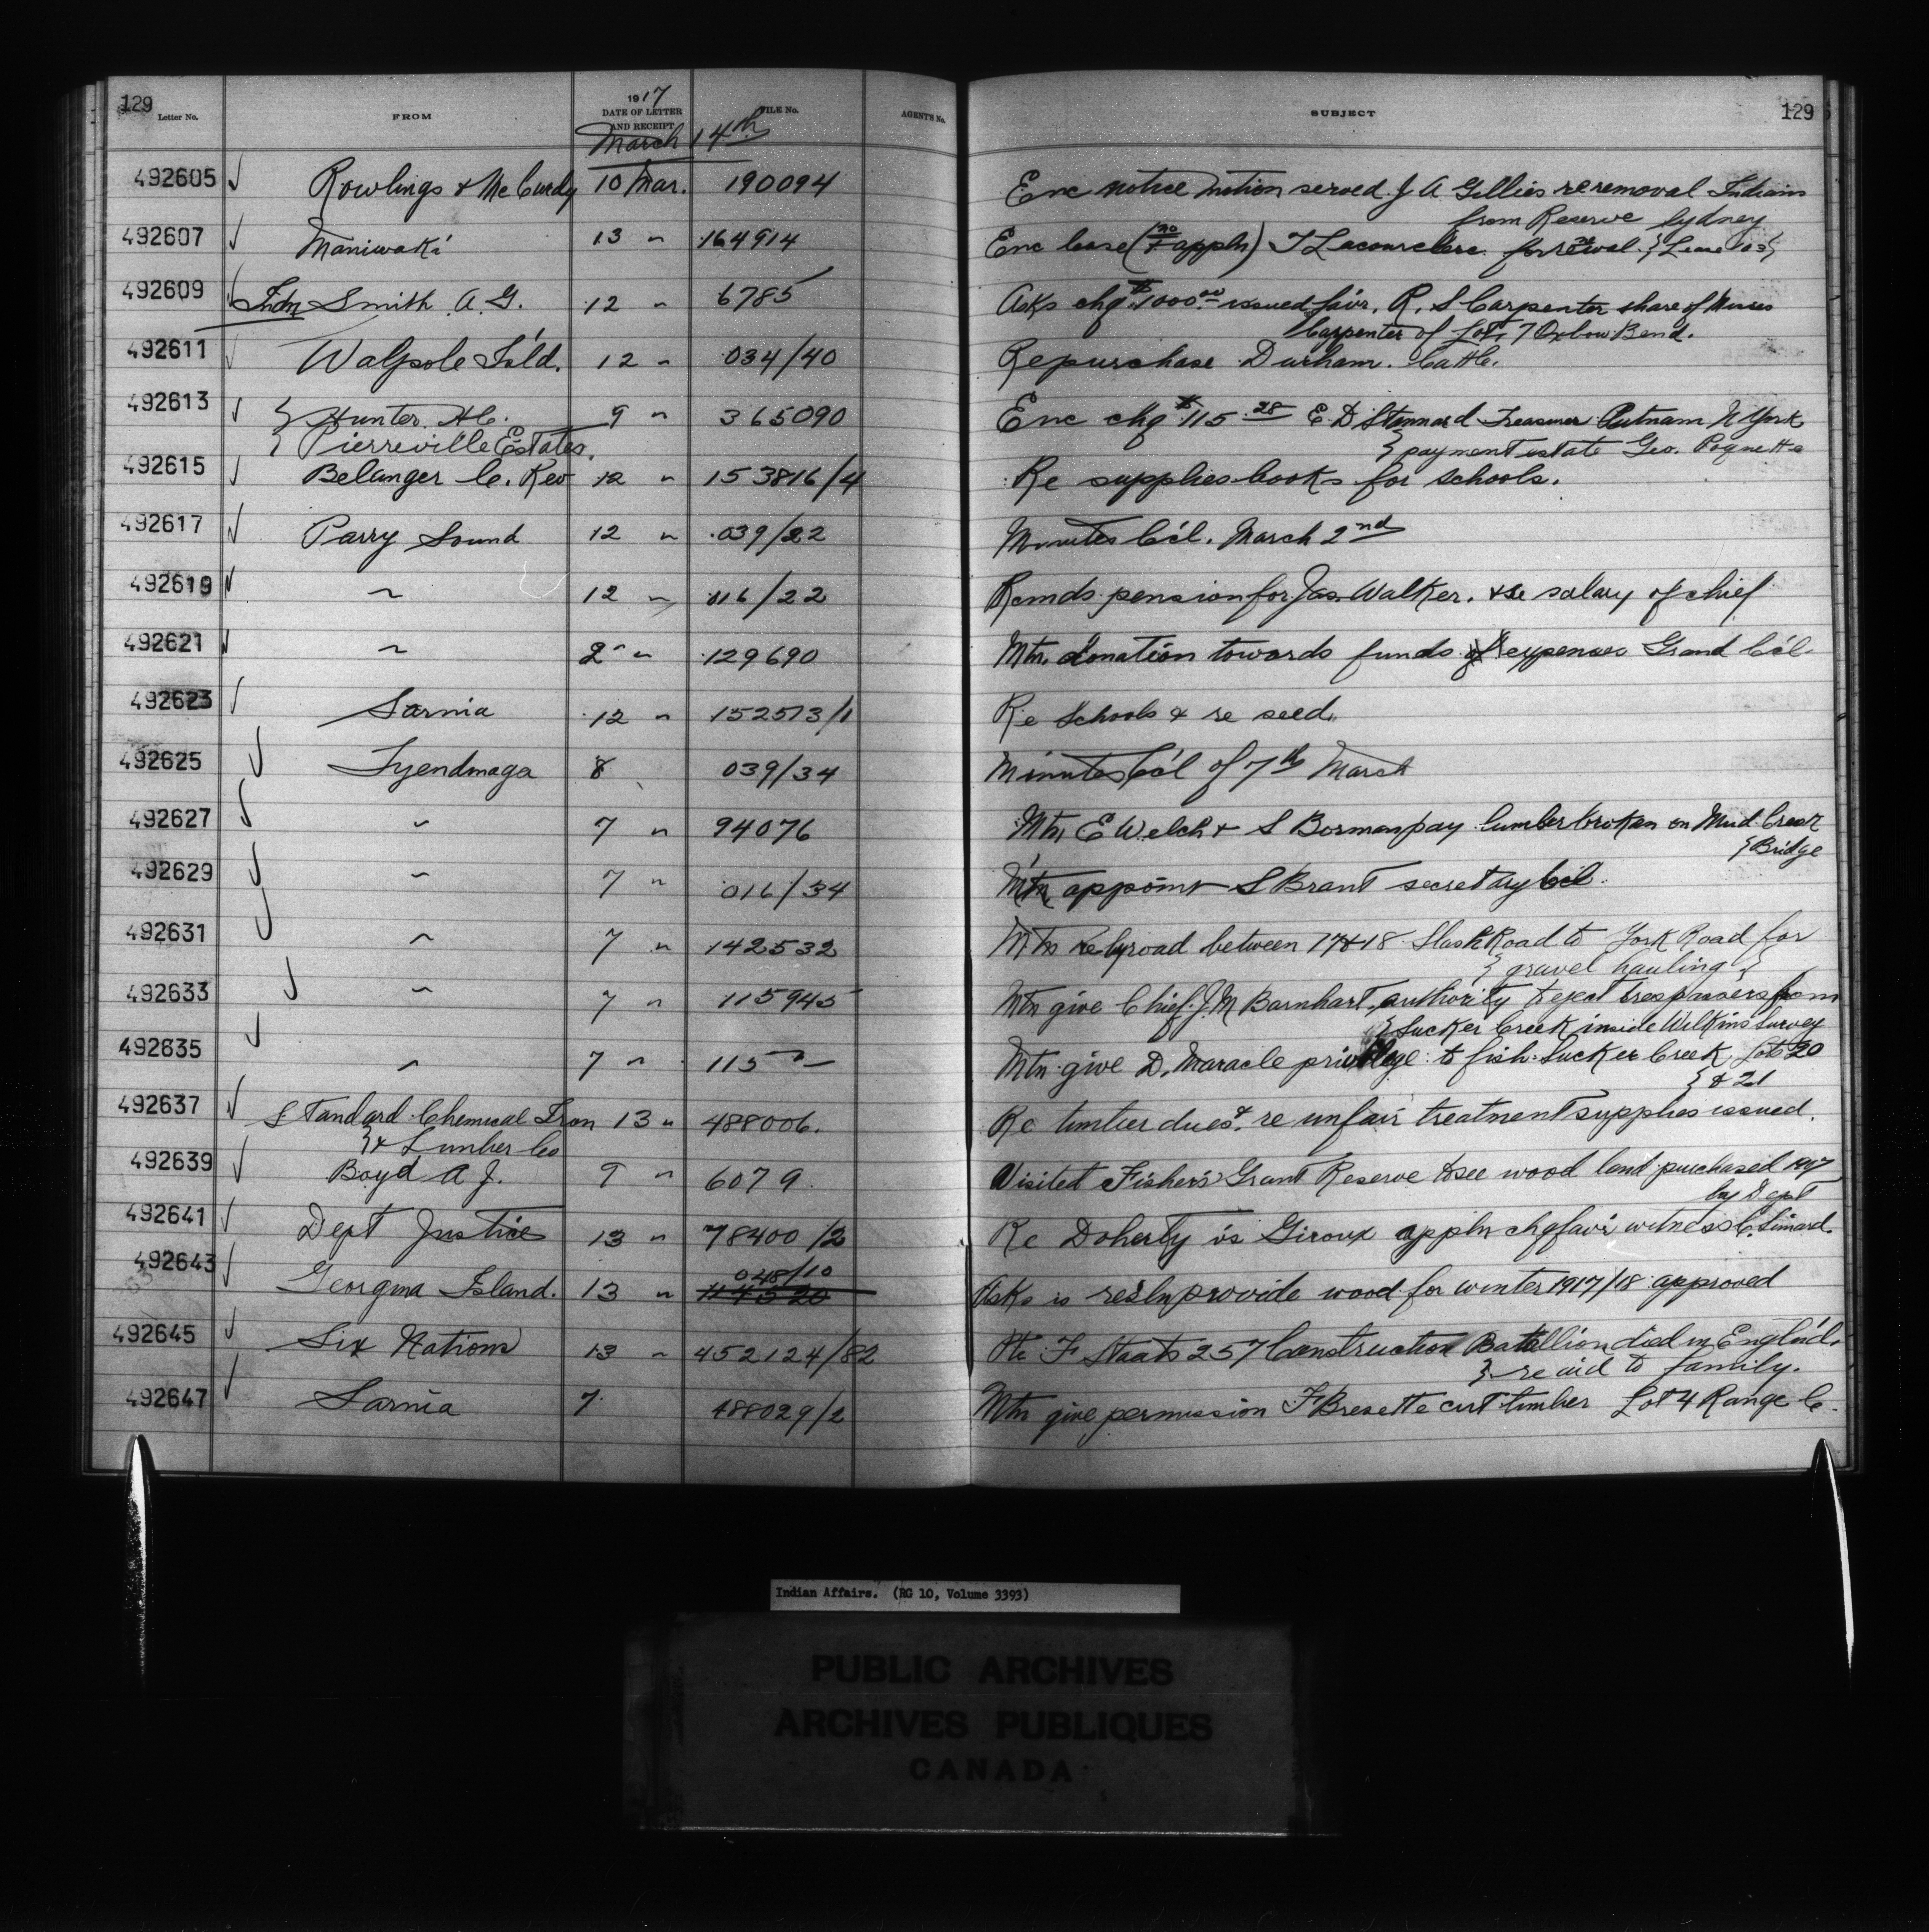 129 Letter No. FROM 1917 DATE OF LETTER AND RECEIPT FILE No. AGENT'S No. SUBJECT 129
March 14th
492605 Rowlings & McCurdy 10 Mar. 190094 Enc notice motion served J A Gillies re removal Indians
from Reserve Sydney
492607 Maniwaki 13 " 164914 Enc lease (no appln) T Lacourciere for rewal. Lease
492609 Indn Smith A. G. 12 " 6785 Asks chq $1000.00 issued favr. R. S Carpenter share of Moses
Carpenter of Lot 7 Oxbow Bend.
492611 Walpole Isld. 12 " 034/40 Re purchase Durham Cattle.
492613 Hunter H C. 9 " 365090 Enc chq $115.28 E. D Stannard Treasurer Putnam N York
Pierreville Estates. payment estate Geo.
492615 Belanger C. Rev 12 " 153816/4 Re supplies books for schools.
492617 Parry Sound 12 " 039/22 Minutes C'cl. March 2nd
492619 " 12 " 016/22 Rcmds pension for Jas Walker. & re salary of chief
492621 " 2 " 129690 Mtn. donation towards funds expenses Grand C'cl.
492623 Sarnia 12 " 152513/1 Re Schools & re seed.
492625 Tyendinaga 8 039/34 Minutes C'cl of 7th March
492627 " 7 " 94076 Mtn E Welch & S Borman pay lumber broken on Mud Creek
Bridge
492629 " 7 " 016/34 Mtn appoint S Brant secretary C'cl.
492631 " 7 " 142532 Mtn re byroad between 17 & 18 Slash Road to York Road for
gravel hauling
492633 " 7 " 115945 Mtn give Chief J. M Barnhart authority to eject trespassers from
Sucker Creek inside Wilkins Survey
492635 " 7 " 115 " Mtn give D. Maracle privilege to fish Sucker Creek Lots 20
& 21
492637 Standard Chemical Iron 13 " 488006. Re timber dues & re unfair treatment supplies issued.
& Lumber Co
492639 Boyd A J. 9 " 6079. Visited Fisher's Grant Reserve to see wood land purchased 1907
by Dept
492641 Dept Justice 13 " 78400/2 Re Doherty vs Giroux appln chq favr witness C. Simard.
048/10
492643 Georgina Island. 13 " 114520 Asks is resln provide wood for winter 1917/18 approved
492645 Six Nations 13 " 452124/82 Pte F Staats 257 Construction Batallion died in Engl'd.
re aid to family.
492647 Sarnia 7. 488029/2 Mtn give permission F Bresette cut timber Lot 4 Range C.
Indian Affairs. (RG 10, Volume 3393)
PUBLIC ARCHIVES
ARCHIVES PUBLIQUES
CANADA